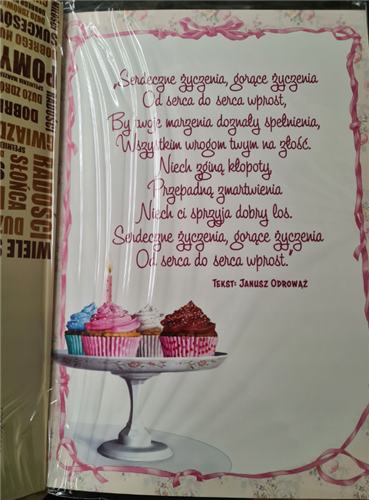 „Serdeczne życzenia, gorące życzenia
Od serca do serca wprost,
By twoje marzenia doznały spełnienia,
Wszystkim wrogom twym na złość.
Niech zginą kłopoty
Przepadną zmartwienia
Niech ci sprzyja dobry los.
Serdeczne życzenia, gorące życzenia
Od serca do serca wprost."
Tekst: Janusz Odrowąż
SUKCESÓW
DOBREGO HU
POMY
DUŻO ZDRO
DOBRE
GWIAZD
RADOŚCI
SŁOŃCA
WIELE S